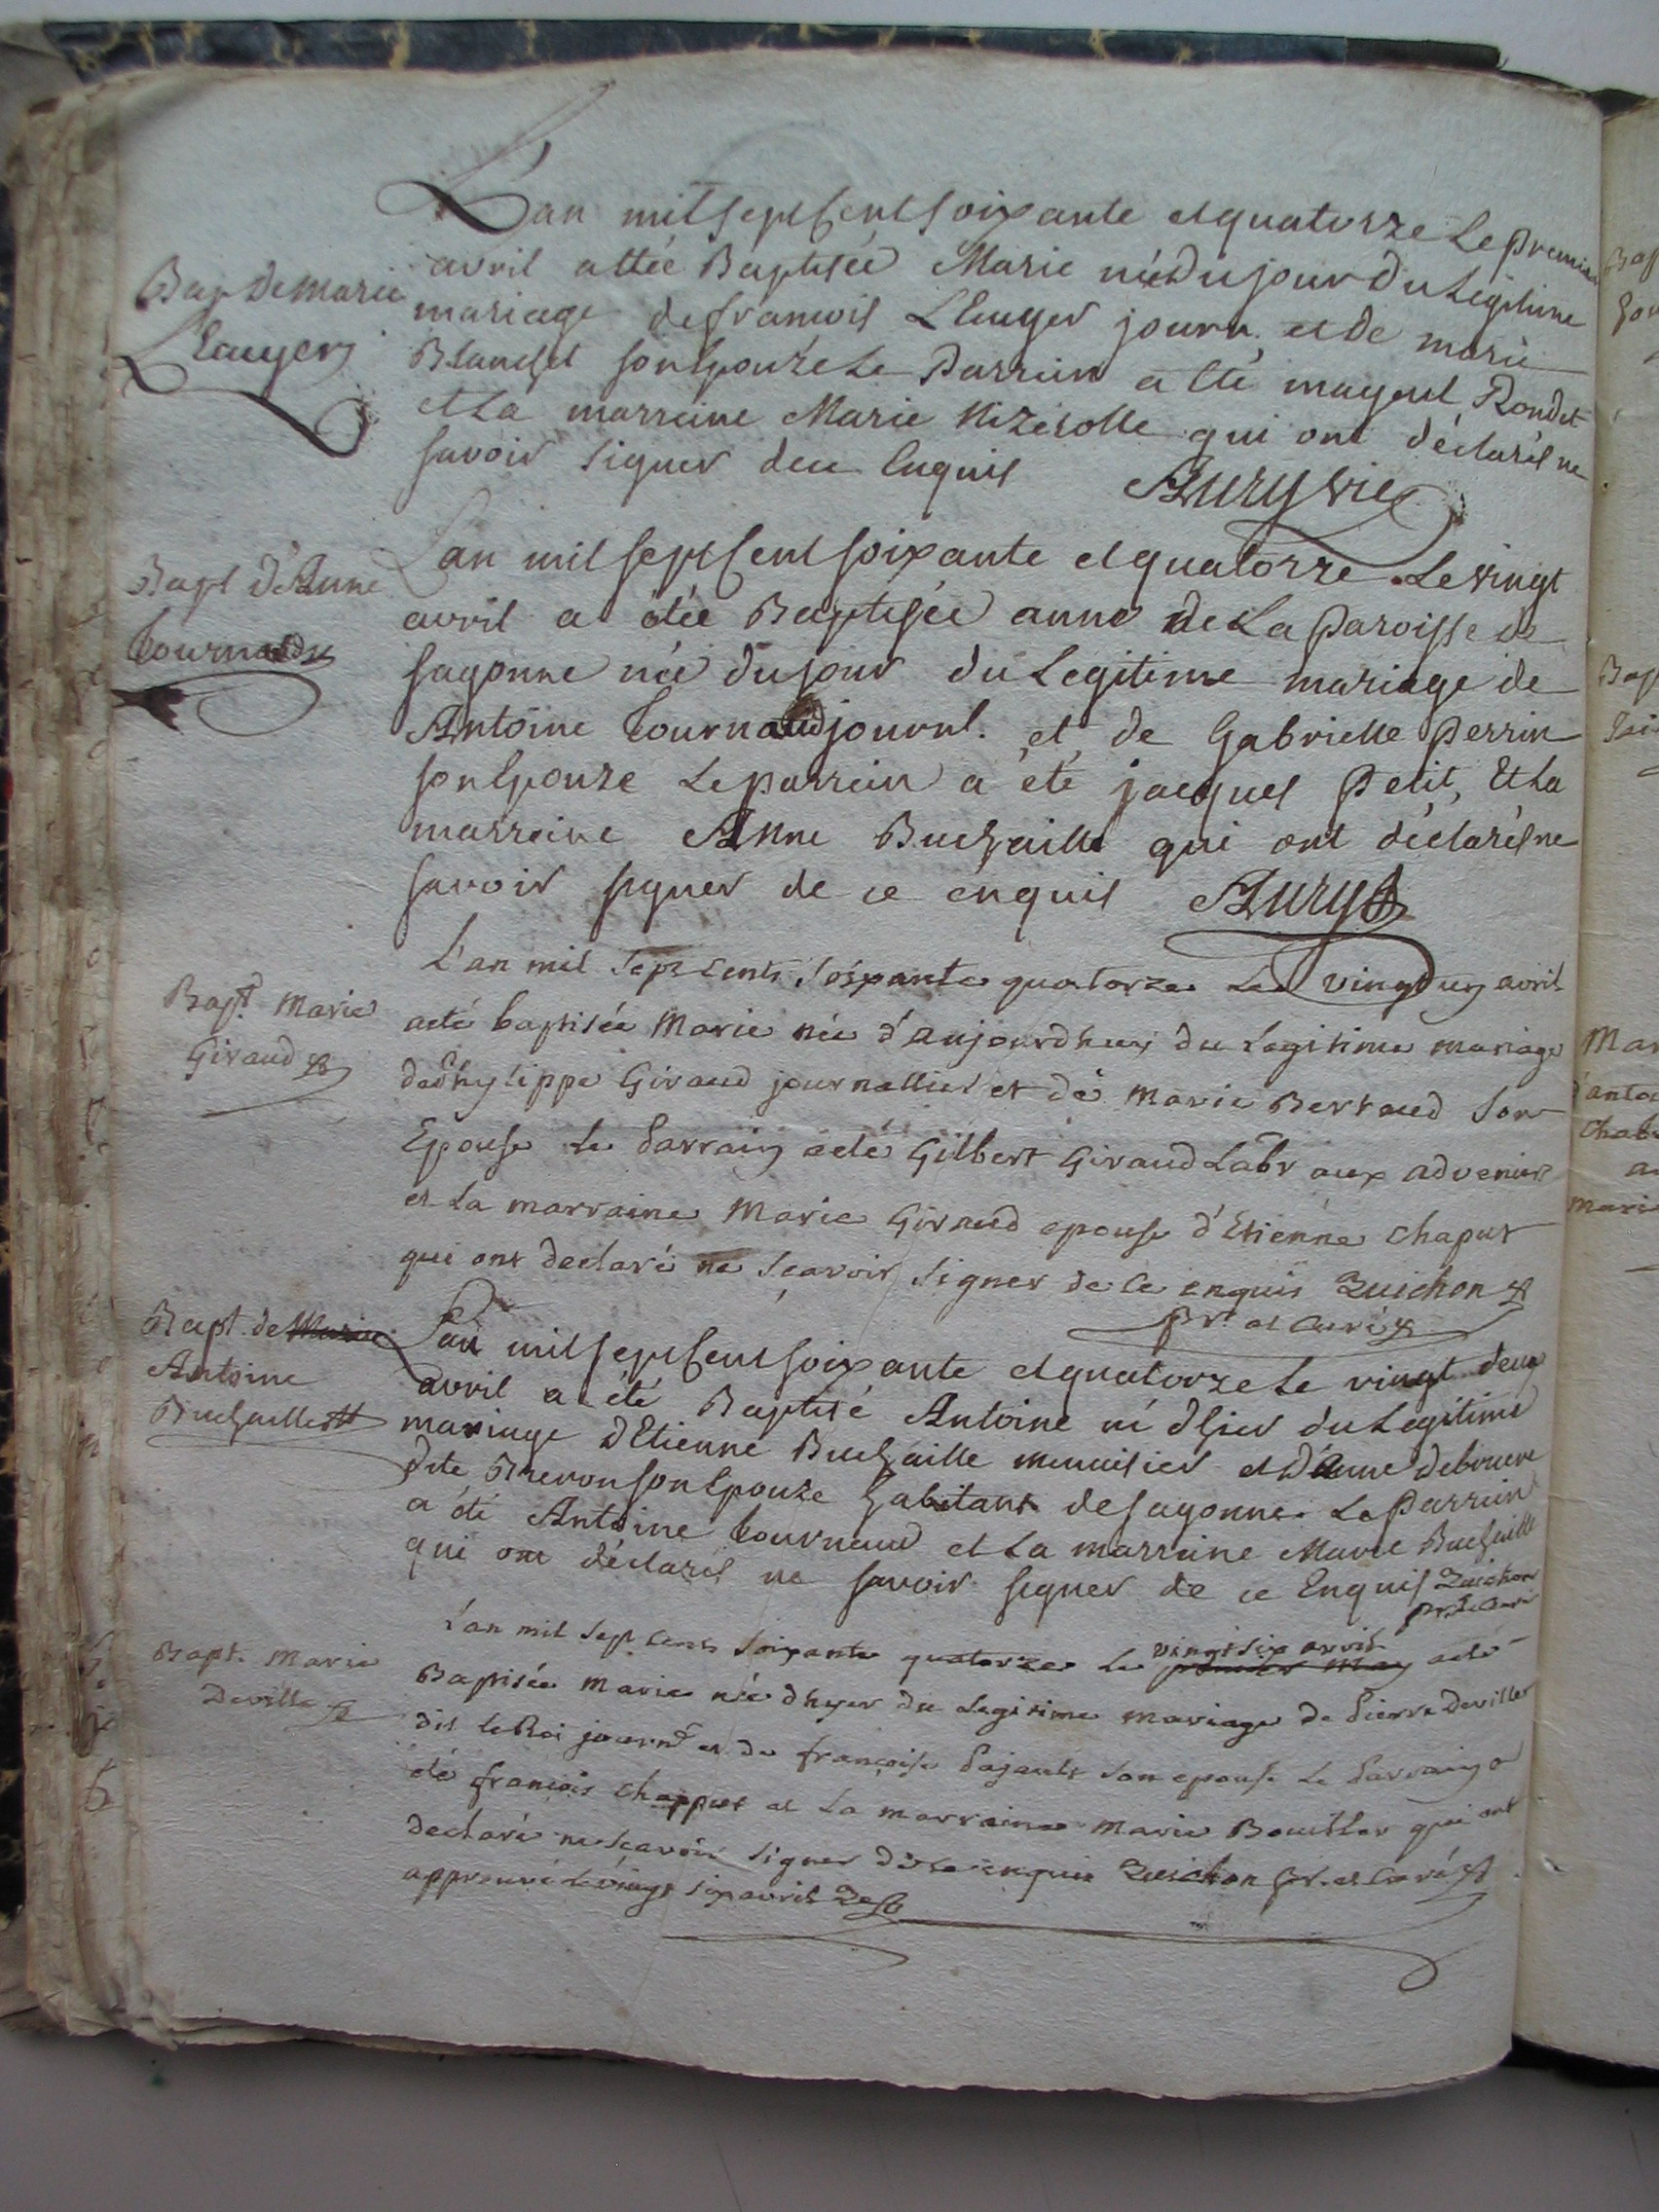 Bap de marie
Leauger
L'an mil sept Cent soixante et quatorze Le premier
avril a ettée Baptisée Marie née du jour du Legitime
mariage de francois LEauger journ. et de marie
Blanchet son Epouze Le Parrein a Eté mayeul Rondet
et La marreine Marie Nizerolle qui ont déclarés ne
savoir signer de ce Enquis Aury vic
Bapt d'Anne
Tournaud
L'an mil sept Cent soixante et quatorze Le vingt
avril a étée Baptisée anne de La Paroisse de
sagonne née du jour du Legitime mariage de
Antoine Tournaud journl. et de Gabrielle Perrin
son Epouze Le parrein a été jacques Petit, Et La
marreine Anne Buchaille qui ont déclarés ne
savoir signer de ce enquis Aury
Bapt. Marie
Giraud
L'an mil sept cents soixante quatorze Le vingt un avril
a eté baptisée Marie née d'aujourdhuy du Legitime mariage
de Phylippe Giraud journallier et de Marie Bertaud son
Epouse Le Parrain a eté Gilbert Giraud Labr aux advenier
et La marraine Marie Giraud epouse d'Etienne Chaput
qui ont declaré ne sçavoir signer de ce enquis Zuichon
pr. et Curé
Bapt. de Marie
Antoine
Buchaille
L'an mil sept Cent soixante et quatorze Le vingt deux
avril a été Baptisé Antoine né d'hier du Legitime
mariage d'Etienne Buchaille menuisier et d'Anne debruere
dite Breuon son Epouze habitant de sagonne. Le Parrein
a été Antoine Tournaud et La marreine Marie Buchaille
qui ont déclarés ne savoir signer de ce Enquis Zuichon
pr. et Curé
Bapt. Marie
Deville
L'an mil sept cents soixante quatorze Le vingt six avril
premier May a eté
Baptisée Marie née d'hyer du Legitime mariage de Pierre Deviller
dit le Roi journ. et de françoise Pajault son epouse Le Parrain a
été françois Chapput et La marraine Marie Bouiller qui ont
declaré ne scavoir signer de ce enquis Zuichon pr. et Curé
approuvé Le vingt six avril